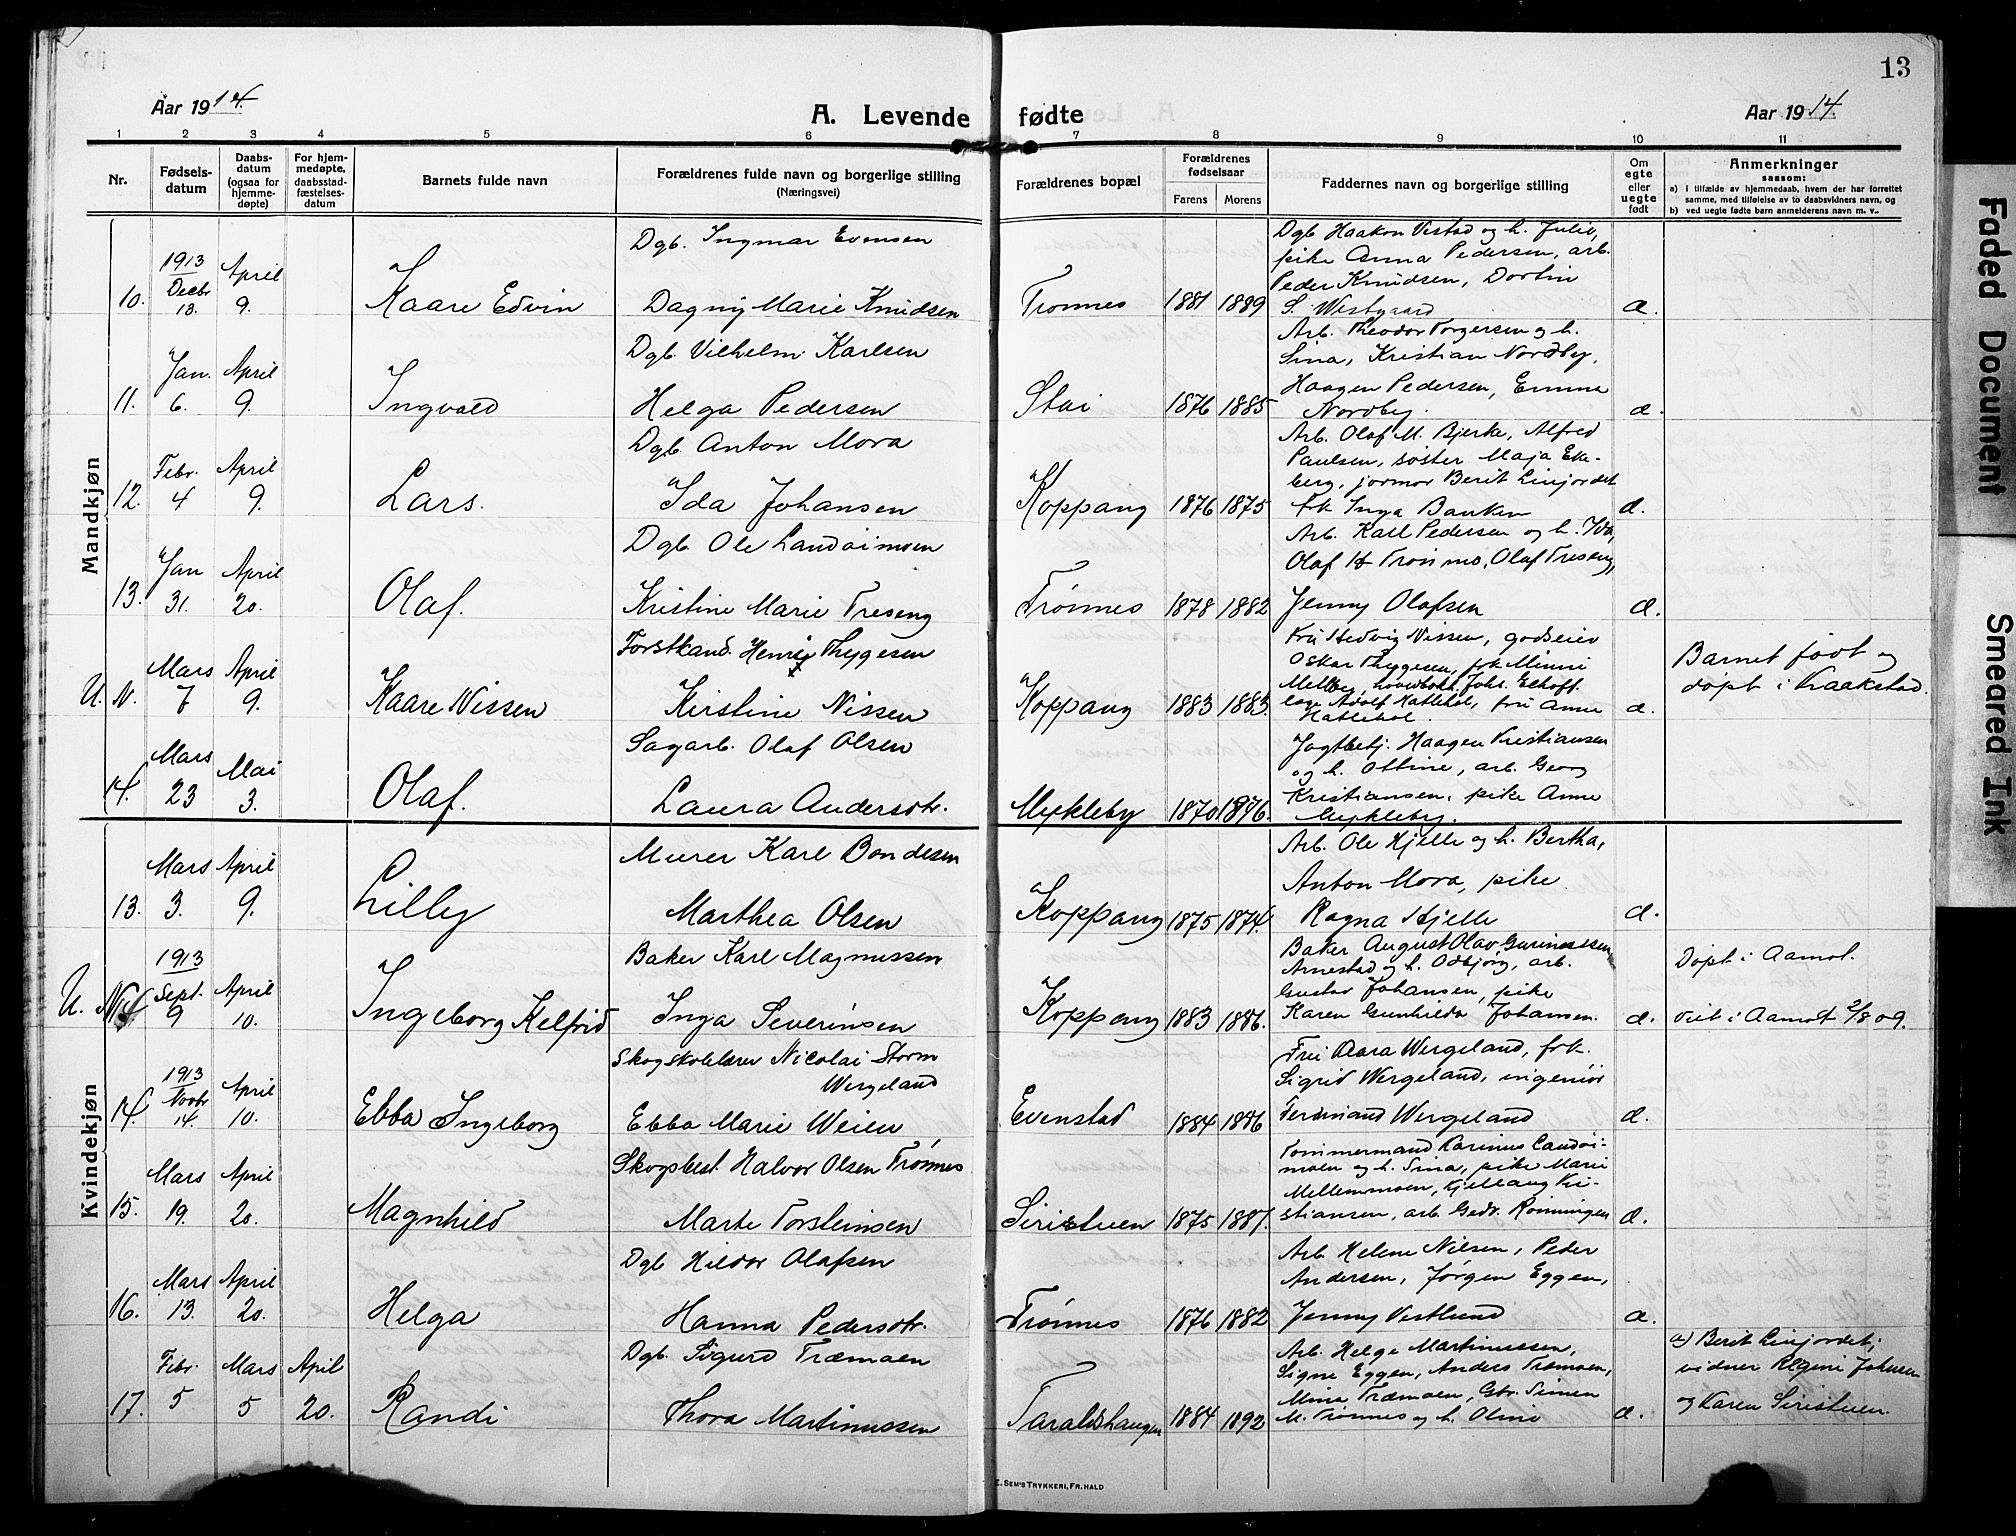 13
Aar 1914.
A. Levende fødte
Aar 1914.
1 2 3 4 5 6 7 8 9 10 11
Nr.
Fødsels-
datum
Daabs-
datum
(ogsaa for
hjemme-
døpte)
For hjem-
medøpte,
daabsstad-
fæstelses-
datum
Barnets fulde navn
Forældrenes fulde navn og borgerlige stilling
(Næringsvei)
Forældrenes bopæl
Forældrenes
fødselsaar
Farens Morens
Faddernes navn og borgerlige stilling
Om
egte
eller
uegte
født
Anmerkninger
saasom:
a) i tilfælde av hjemmedaab, hvem der har forrettet
samme, med tilføielse av to daabsvidners navn, og
b) ved uegte fødte barn anmelderens navn m. v..
Mandkjøn
10. 1913 Decbr 13. April 9. Kaare Edvin
Dgb. Ingmar Evensen
Dagny Marie Knudsen
Trønnes 1881 1889
Dgb Haakon Vestad og h. Julie,
pike Anna Pedersen, arb.
Peder Knudsen, Dortin
S. Westgaard
æ.
11. Jan. 6. April 9. Ingvald
Dgb. Vilhelm Karlsen
Helga Pedersen
Stai 1876 1885
Arb. Theodor Torgersen og h.
Sina, Kristian Nordby,
Haagen Pedersen, Emma
Nordby.
æ.
12. Febr. 4 April 9. Lars.
Dgb Anton Mora
Ida Johansen
Koppang 1876 1875
Arb. Olaf M. Bjerke, Alfred
Paulsen, søster Maja Eke-
berg, jormor Berit Linjordet
frk Inga Banken
æ.
13. Jan 31. April 20. Olaf.
Dgb Ole Landaimoen
Kristine Marie Treseng
Trønnes 1878 1882
Arb. Karl Pedersen og h. Ida,
Olaf H Trønmo, Olaf Treseng,
Jenny Olafsen
æ.
U. N. Mars 7 April 9. Kaare Nissen
Forstkand. Henrig Thygesen
Kirstine Nissen
Koppang 1883 1883.
Fru Hedvig Nissen, godseier
Oskar Thygesen, frk Minni
Melby, Johs. Eckoff.
Adolf Hatlehol, fru Anne
Hatlehol.
æ.
Barnet født og
døpt i Kraakstad.
14. Mars 23 Mai 3. Olaf.
Sagarb. Olaf Olsen
Laura Andersdtr.
Mykleby 1870 1876.
Jagtbetj. Haagen Kristiansen
og h. Ottine, arb. Georg
Kristiansen, pike Anne
Mykleby.
Kvindekjøn
13. Mars 3. April 9. Lilly
Murer Karl Bondesen
Marthea Olsen
Koppang 1875 1874.
Arb. Ole Hjelle og h. Bertha,
Anton Mora, pike
Ragna Hjelle
æ.
U. N. 1913 Sept. 9 April 10. Ingeborg Kelfrid
Baker Karl Magnussen
Inga Severinsen
Koppang 1883 1886.
Baker August Olav
Arnestad og h. Odbjørg, arb.
Gustav Johansen, pike
Karen Gunhilda Johansen.
æ.
Døpt i Aamot.
viet i Aamot 2/8 09.
14. 1913 Novbr 14. April 10. Ebba Ingeborg
Skogskolelærer Nicolai Storm
Wergeland
Ebba Marie Weien
Evenstad 1884 1886
Fru Aara Wergeland, frk.
Sigrid Wergeland, ingeniør
Ferdinand Wergeland
æ.
15. Mars 19. April 20. Magnhild
Skogsbest. Halvor Olsen Trønnes
Marte Torsteinsen
Siristuen 1875 1887.
Tømmermand Karinus Landai-
moen og h. Sina, pike Marie
Mellemmoen, Kjellaug Kri-
stiansen, arb. Gedv. Rønningen
æ.
16. Mars 13. April 20. Helga
Dgb Hildor Olafsen
Hanna Pedersdtr.
Trønnes 1876 1882
Arb. Helene Nilsen, Peder
Andersen, Jørgen Eggen,
Jenny Vestlund
æ.
17. Febr. 5 Mars 5 April 20. Randi
Dgb. Sigurd Træmoen
Thora Martinussen
Taraldshaugen 1884 1892
Arb. Helge Martinussen,
Signe Eggen, Anders Træmoen,
Mina Træmoen, Gbr. Simen
M. Trønnes og h. Oline
æ.
a) Berit Linjordet;
vidner Regine Johnsen
og Karen Siristuen.
E. SEM'S TRYKKERI, FR.HALD
Faded Document
Smeared Ink